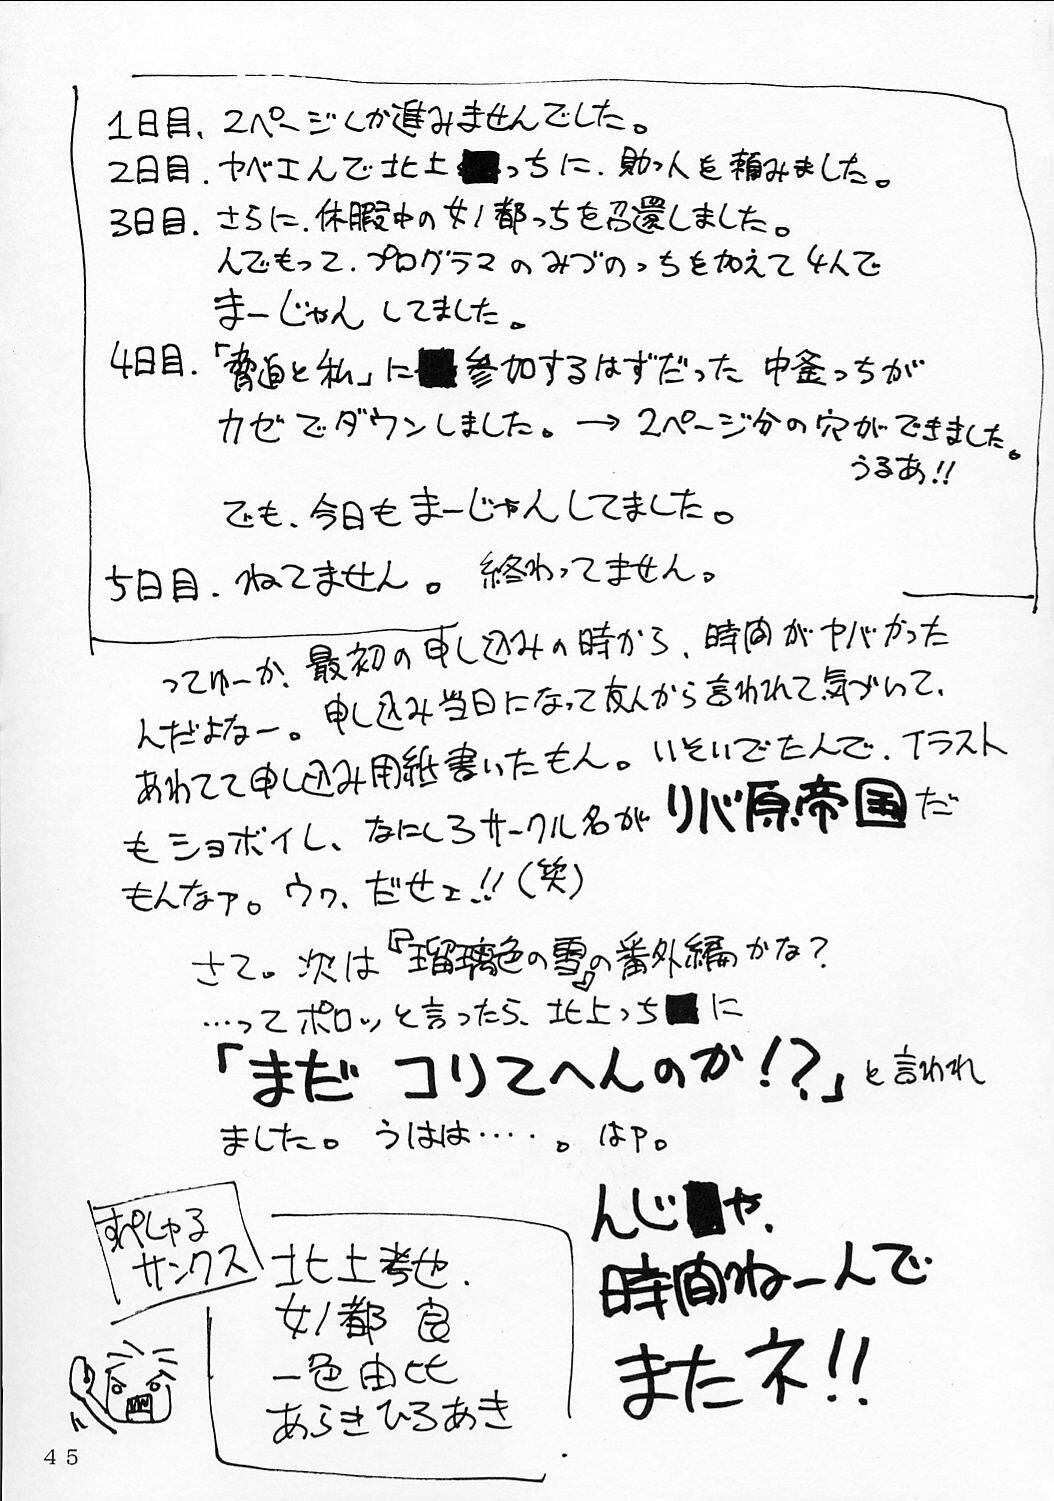 1日目、2ページしか進みませんでした。
2日目.ヤベエんで北上っちに、助っ人を頼みました。
3日目.さらに、休暇中の女ノ都っちを召還しました。
んでもって、プログラマのみづのっちを加えて4人で
まーじゃんしてました。
4日目.「脅迫と私」に参加するはずだった中釜っちが
カゼでダウンしました。→2ページ分の穴ができました。
うるあ!!
でも、今日もまーじゃんしてました。
5日目.ねてません。終わってません。
ってゆーか、最初の申し込みの時から、時間がヤバかった
んだよなー。申し込み当日になって友人から言われて気づいて、
あわてて申し込み用紙書いたもん。いそいでたんで、イラスト
もショボイし、なにしろサークル名がリバ原帝国だ
もんなァ。ウワ、だせェ!!(笑)
さて。次は『瑠璃色の雪』の番外編かな?
…ってポロッと言ったら、北上っちに
「まだコリてへんのか!?」と言われ
ました。うはは・・・・・。はァ。
すぺしゃる
サンクス
北上考也.
女ノ都 良
一色由比
あらきひろあき
んじゃ、
時間ねーんで
またネ!!
45